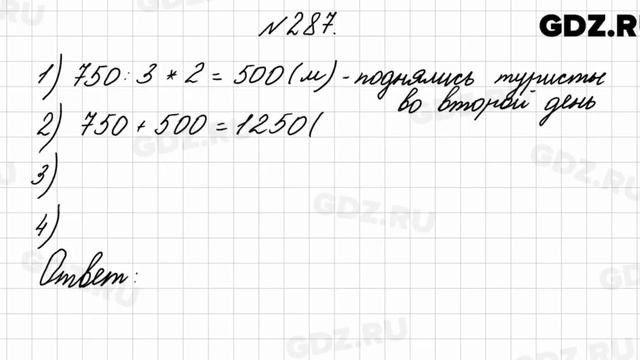 GDZ.RU
№287.
1) 750 : 3 * 2 = 500 (м) - поднялись туристы
во второй день
2) 750 + 500 = 1250 (
3)
4)
Ответ:
GDZ.RU
GDZ.RU
GDZ.RU
GDZ.RU
GDZ.RU
GDZ.RU